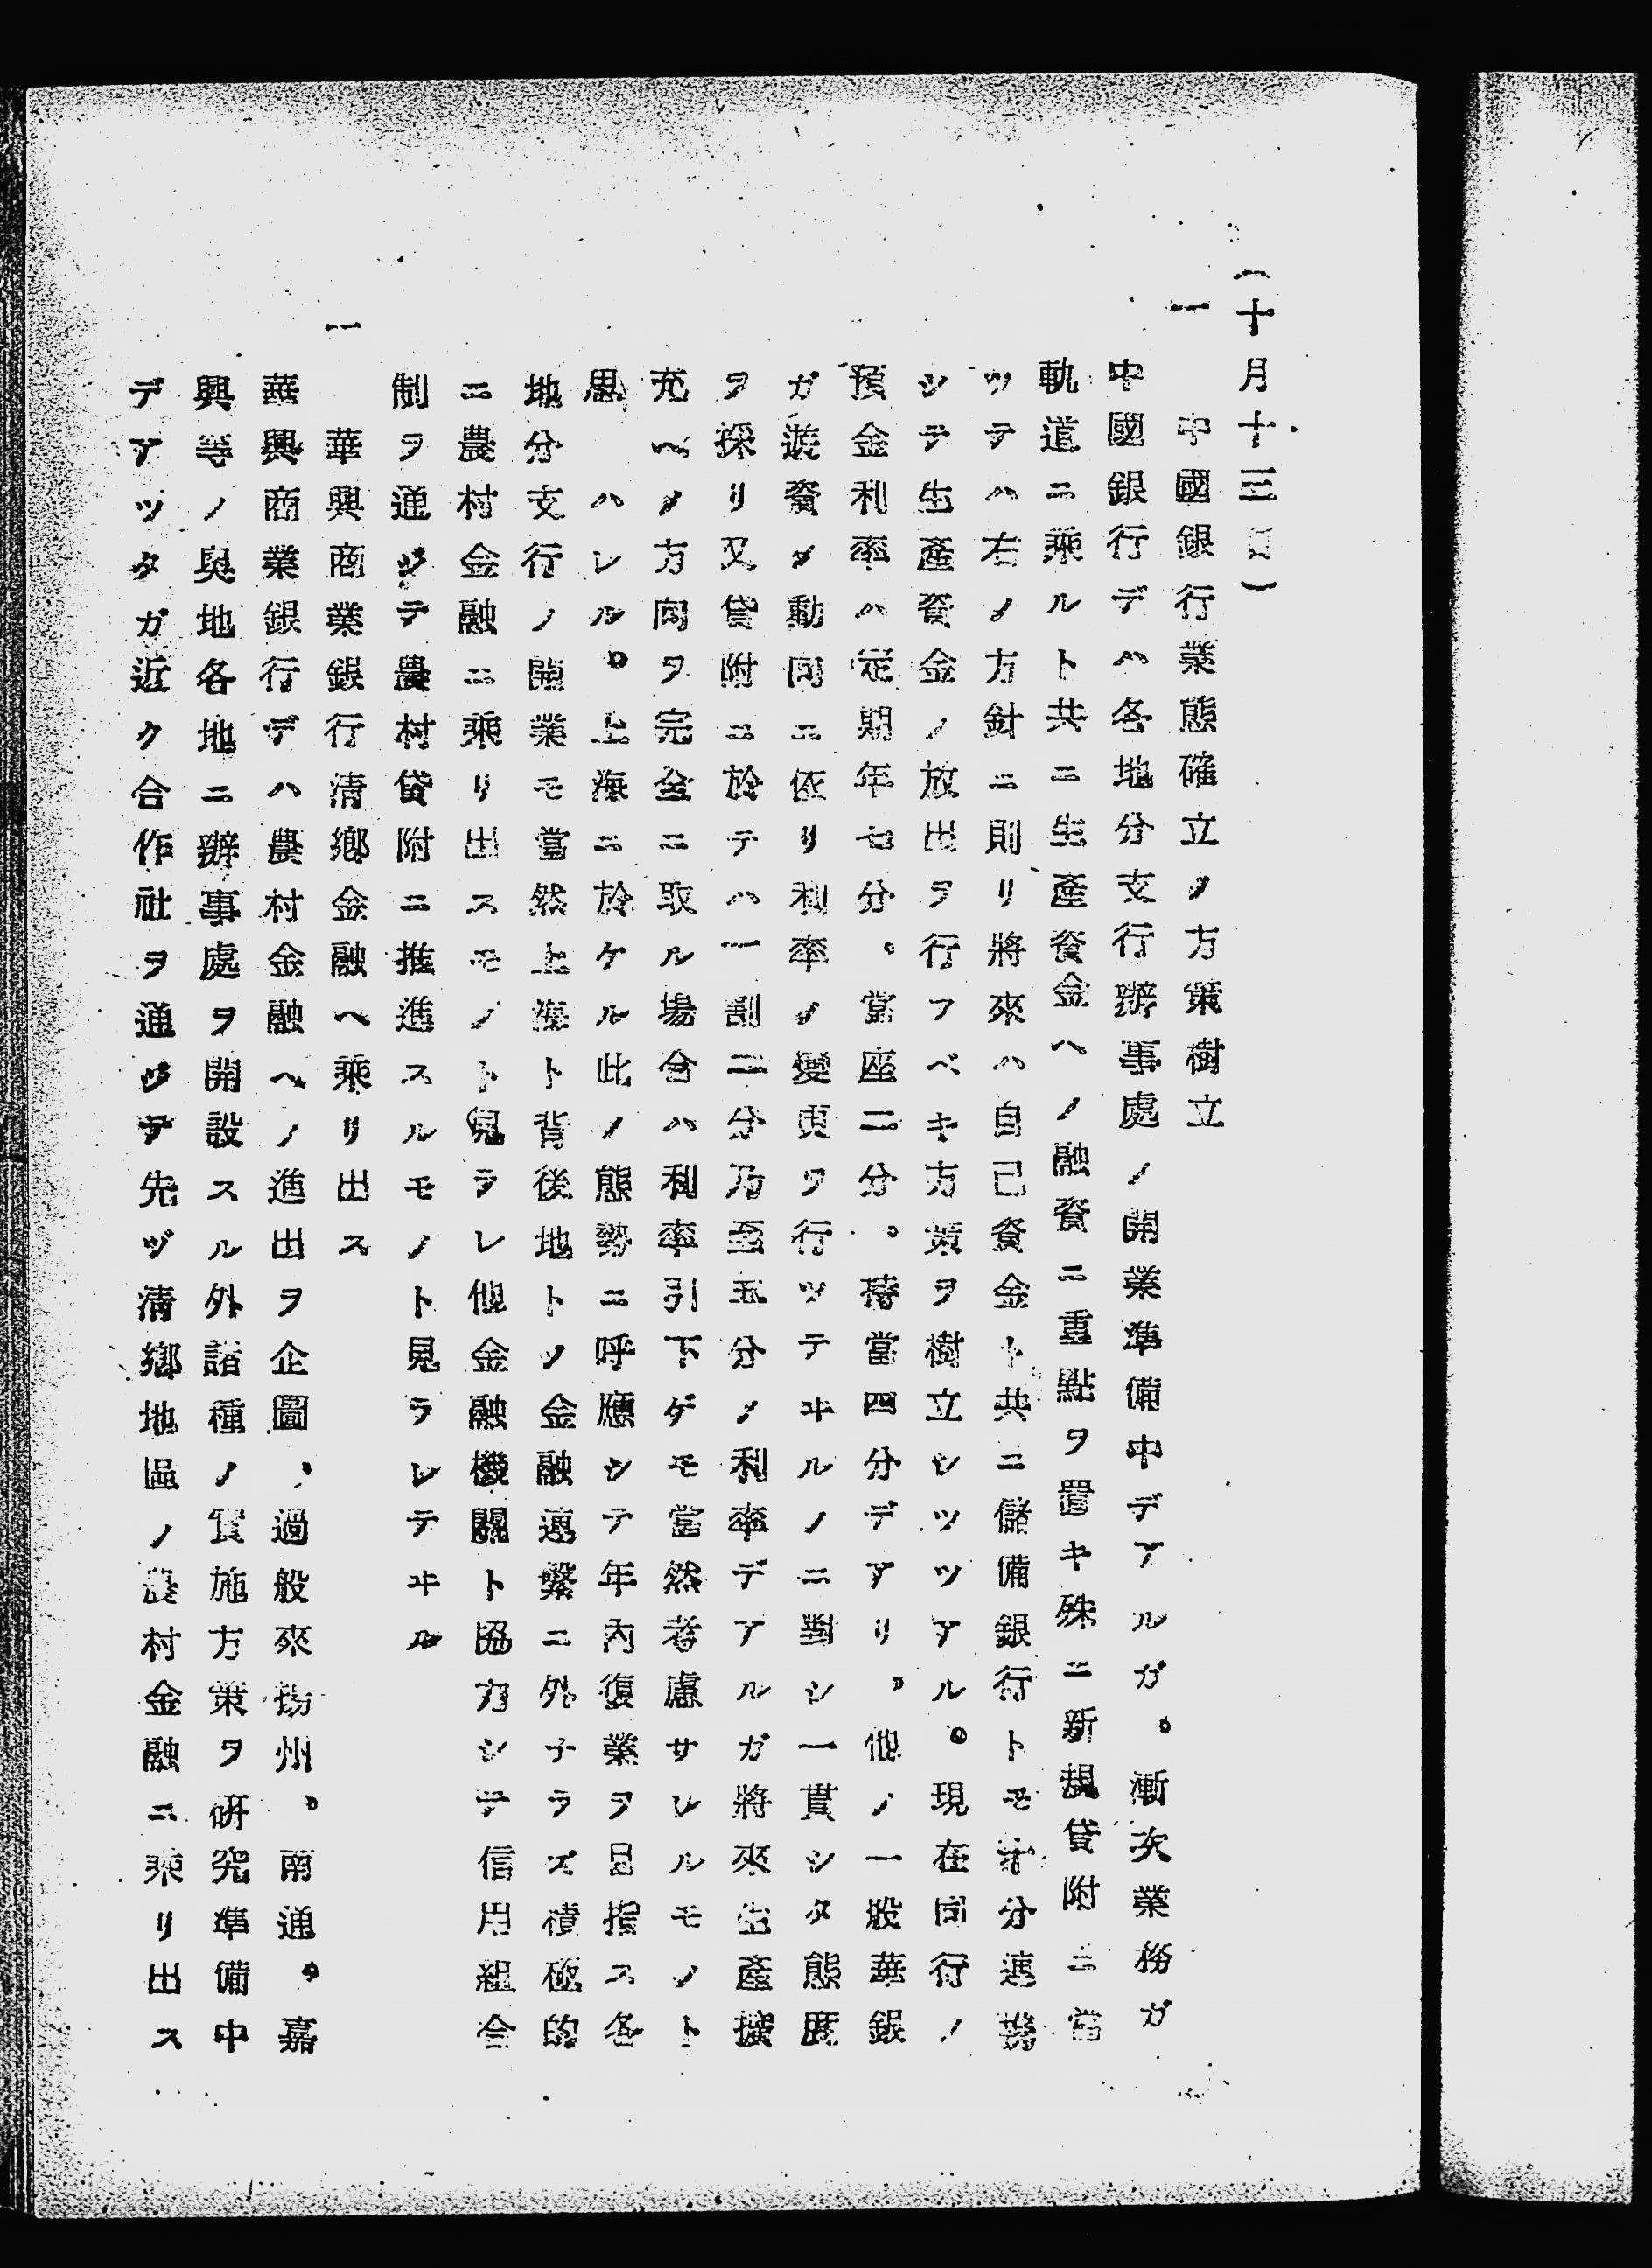 (十月十三日)
一　中國銀行業態確立ノ方策樹立
中國銀行デハ各地分支行辦事處ノ開業準備中デアルガ。漸次業務ガ
軌道ニ乘ルト共ニ生產資金ヘノ融資ニ重點ヲ置キ殊ニ新規貸附ニ當
ツテハ右ノ方針ニ則リ將來ハ自己資金ト共ニ儲備銀行トモ充分連繫
シテ生產資金ノ放出ヲ行フベキ方策ヲ樹立シツツアル。現在同行ノ
預金利率ハ定期年七分。當座二分。特當四分デアリ。他ノ一般華銀
ガ遊資ノ動向ニ依リ利率ノ變更ヲ行ツテヰルノニ對シ一貫シタ態度
ヲ採リ又貸附ニ於テハ一割二分乃至五分ノ利率デアルガ將來生產擴
充ヘノ方向ヲ完全ニ取ル場合ハ利率引下ゲモ當然考慮サレルモノト
思ハレル。上海ニ於ケル此ノ態勢ニ呼應シテ年內復業ヲ目指ス各
地分支行ノ開業モ當然上海ト背後地トノ金融連繫ニ外ナラズ積極的
ニ農村金融ニ乘リ出スモノト見ラレ他金融機關ト協力シテ信用組合
制ヲ通ジテ農村貸附ニ推進スルモノト見ラレテヰル
一　華興商業銀行清鄉金融ヘ乘リ出ス
華興商業銀行デハ農村金融ヘノ進出ヲ企圖、過般來揚州。南通。嘉
興等ノ奧地各地ニ辦事處ヲ開設スル外諸種ノ實施方策ヲ研究準備中
デアツタガ近ク合作社ヲ通ジテ先ヅ清鄉地區ノ農村金融ニ乘リ出ス